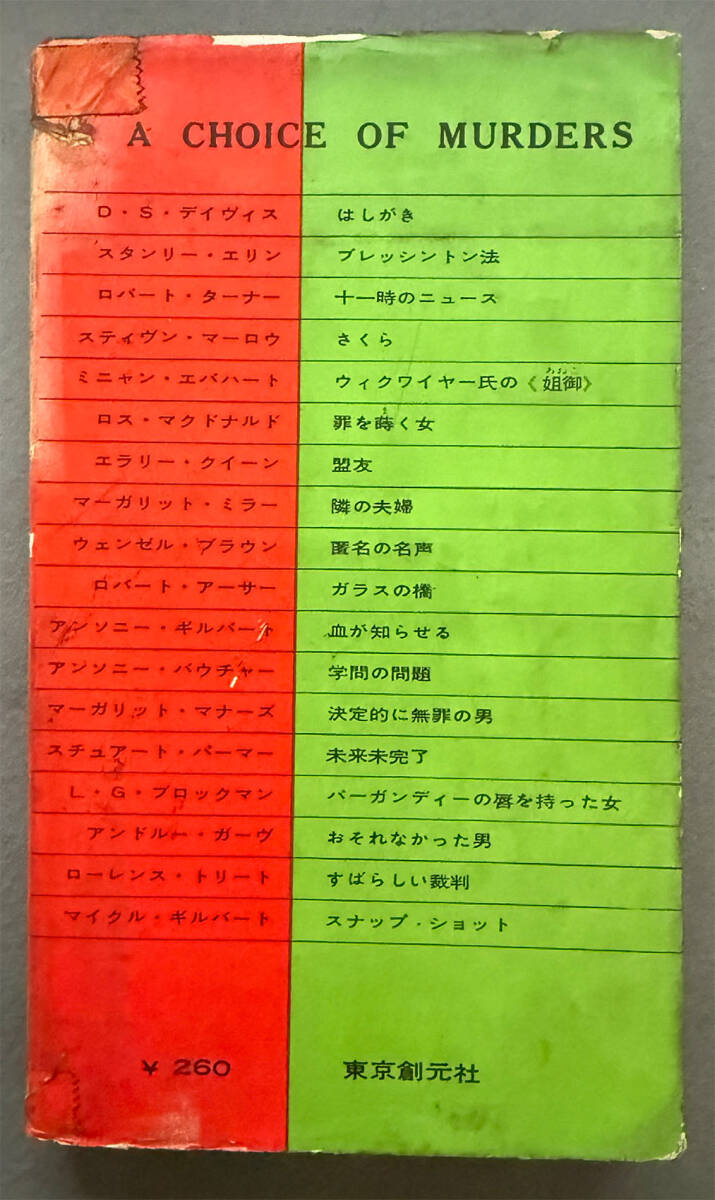 A CHOICE OF MURDERS
D・S・デイヴィス はしがき
スタンリー・エリン ブレッシントン法
ロバート・ターナー 十一時のニュース
スティヴン・マーロウ さくら
ミニャン・エバハート ウィクワイヤー氏の〈姐御〉
ロス・マクドナルド 罪を蒔く女
エラリー・クイーン 盟友
マーガリット・ミラー 隣の夫婦
ウェンゼル・ブラウン 匿名の名声
ロバート・アーサー ガラスの橋
アンソニー・ギルバート 血が知らせる
アンソニー・バウチャー 学問の問題
マーガリット・マナーズ 決定的に無罪の男
スチュアート・パーマー 未来未完了
L・G・ブロックマン バーガンディーの唇を持った女
アンドルー・ガーヴ おそれなかった男
ローレンス・トリート すばらしい裁判
マイクル・ギルバート スナップ・ショット
¥ 260 東京創元社